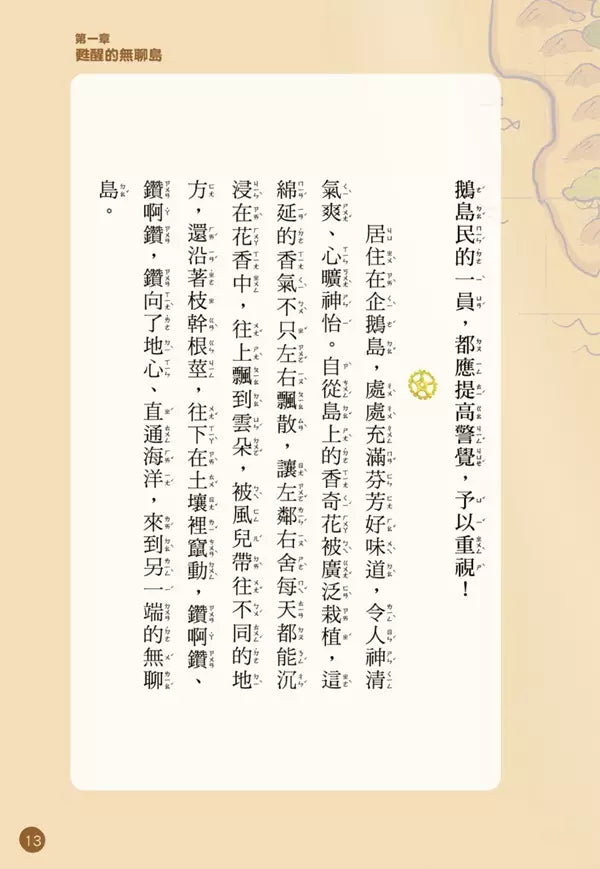 第一章
甦醒的無聊島
鵝島民的一員，都應提高警覺，予以重視！
居住在企鵝島，處處充滿芬芳好味道，令人神清
氣爽、心曠神怡。自從島上的香奇花被廣泛栽植，這
綿延的香氣不只左右飄散，讓左鄰右舍每天都能沉
浸在花香中，往上飄到雲朵，被風兒帶往不同的地
方，還沿著枝幹根莖，往下在土壤裡竄動，鑽啊鑽、
鑽啊鑽，鑽向了地心、直通海洋，來到另一端的無聊
島。
13